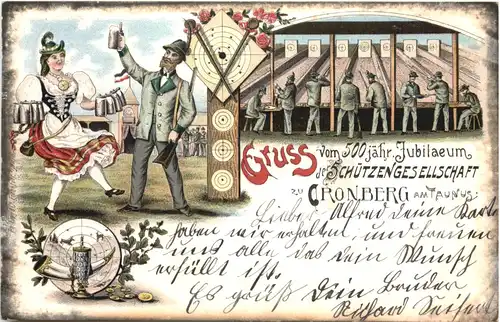 Gruss vom 500 jähr. Jubilaeum
der SCHÜTZENGESELLSCHAFT
zu CRONBERG AM TAUNUS.
Lieber Alfred deine Kart
haben wir erhalten, und freuen
uns alle das dein Wunsch
erfüllt ist.
Es grüß Dein Bruder
Richard Seifert